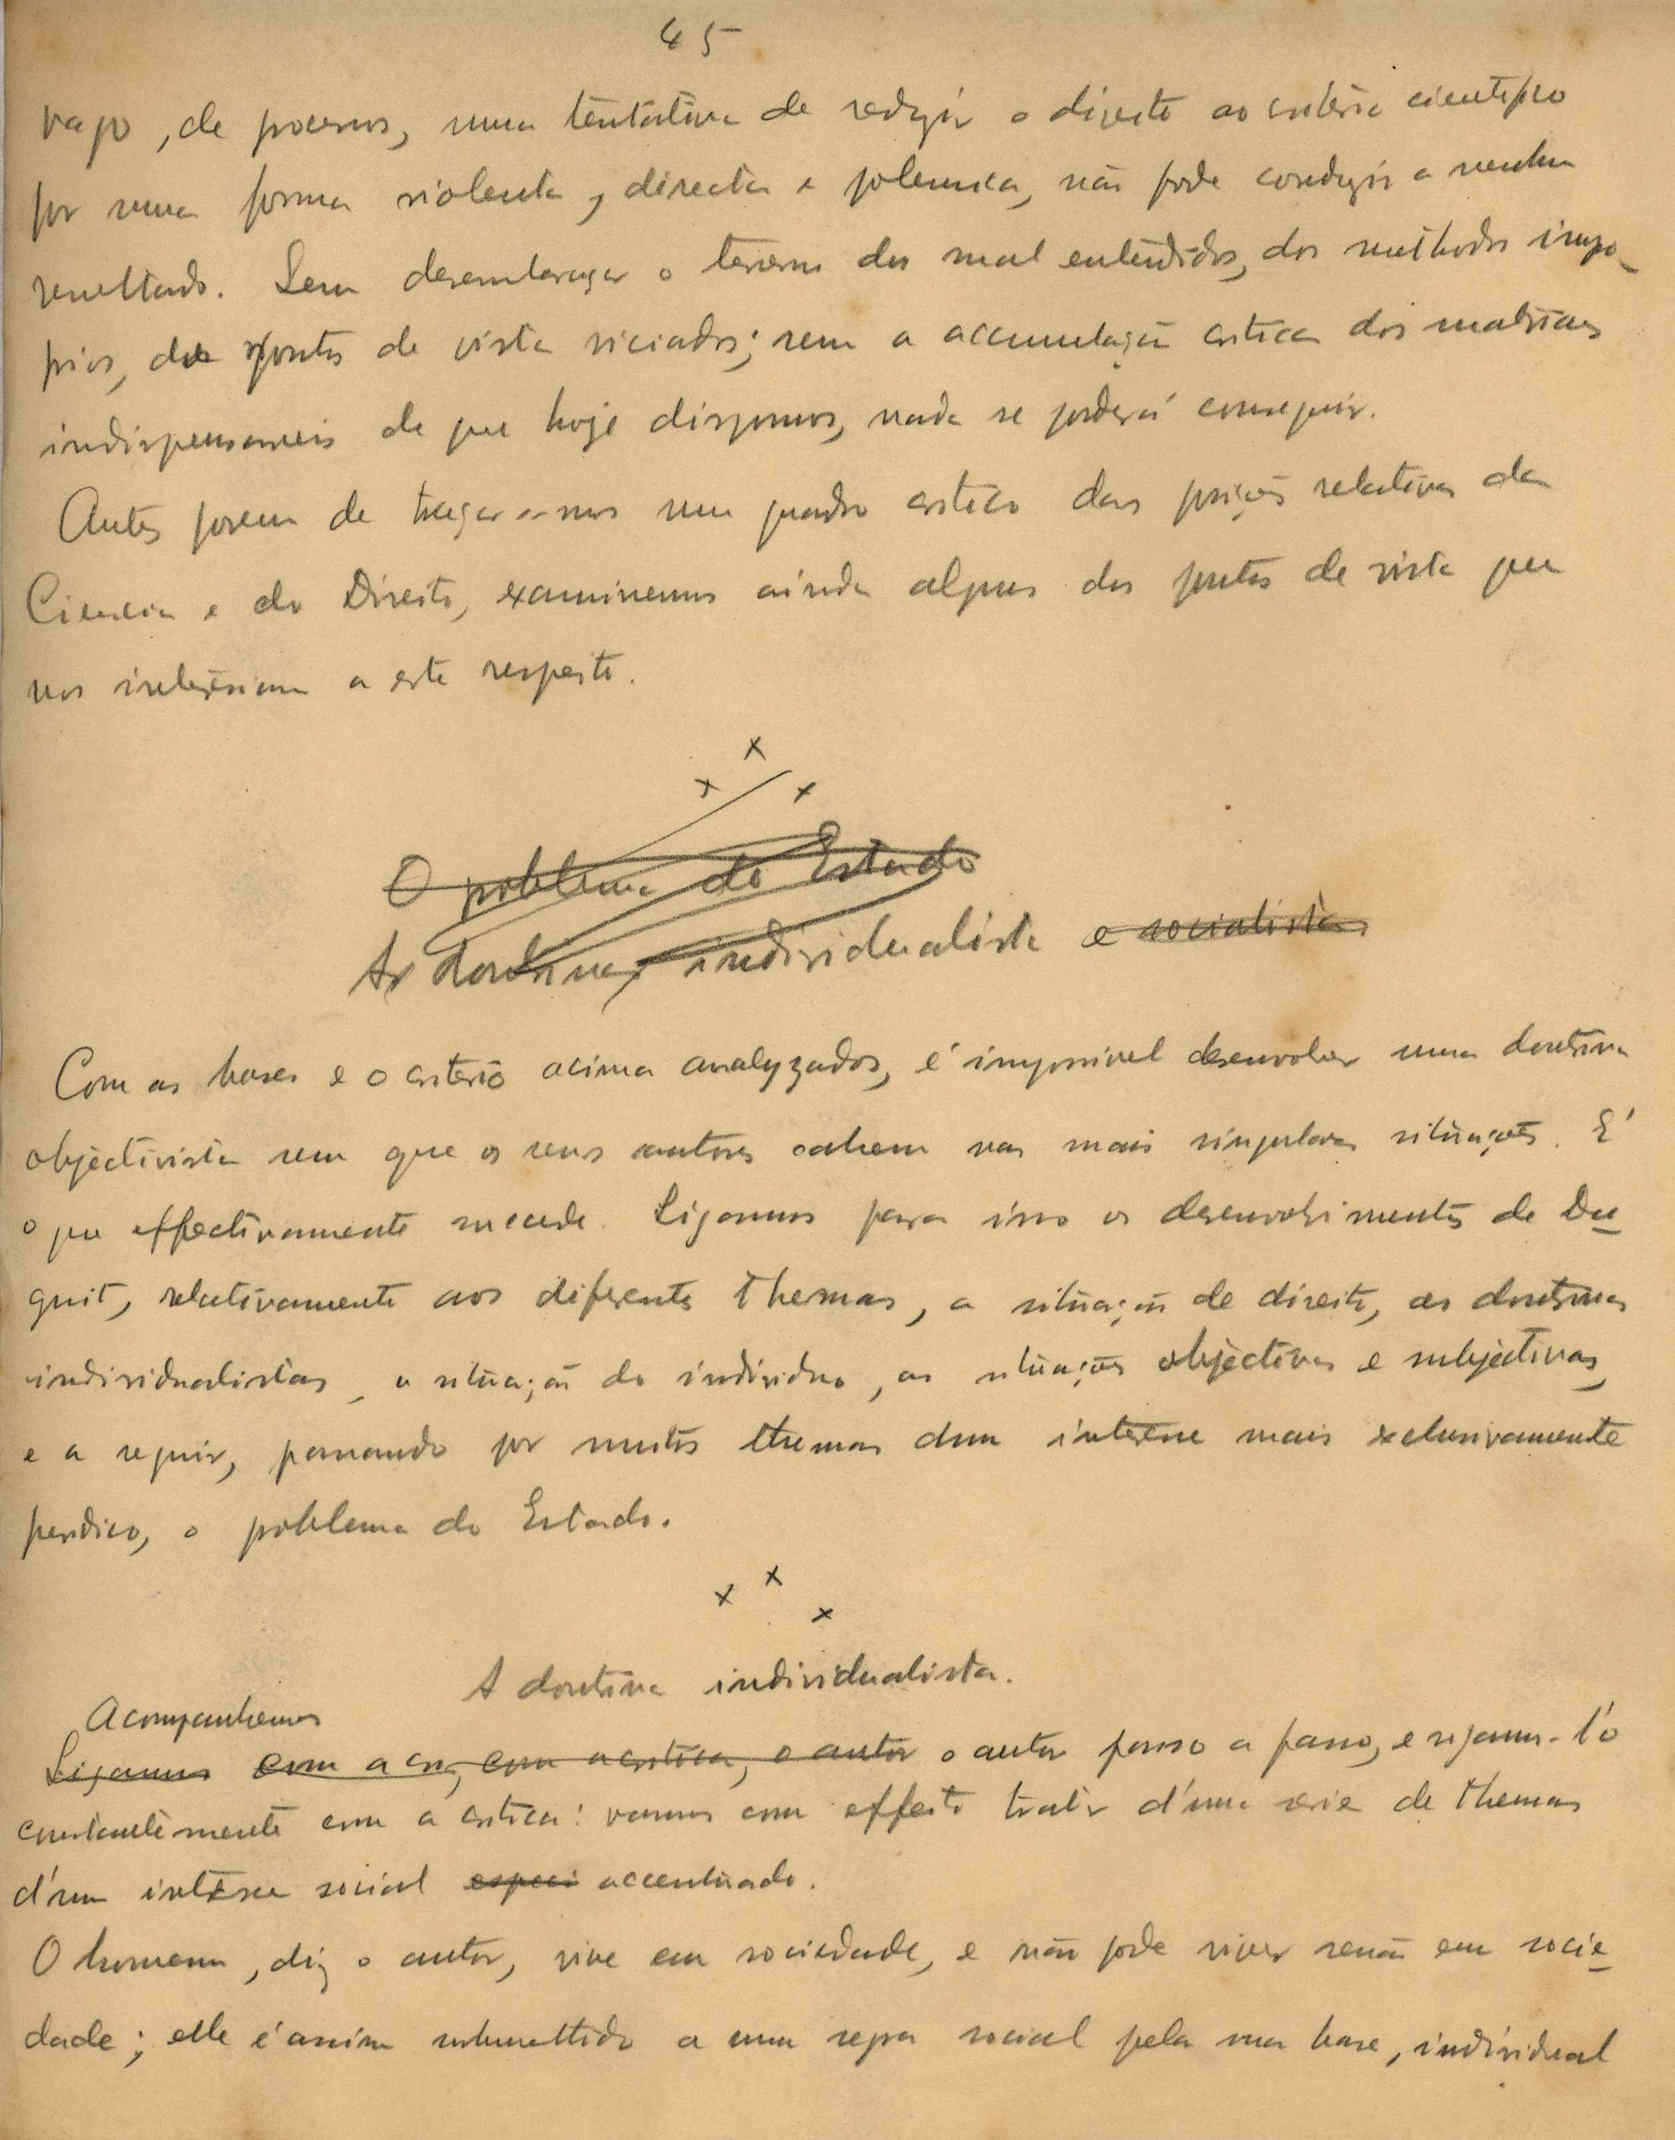 45
vago, de processos, uma tentativa de reduzir o direito ao criterio cientifico
por uma forma violenta, directa e polemica, não pode conduzir a nenhum
resultado. Sem desembaraçar o terreno dos mal entendidos, dos methodos impro-
prios, dos pontos de vista viciados; sem a accumulação critica dos materiaes
indispensaveis de que hoje dispomos, nada se poderá conseguir.
Antes porem de traçar-mos um quadro critico das posições relativas da
Ciencia e do Direito, examinemos ainda alguns dos pontos de vista que
nos interessam a este respeito.
x
x x
O problema do Estado
As doutrinas individualista e socialista
Com as bases e o criterio acima analyzados, é impossivel desenvolver uma doutrina
objectivista sem que os seus autores cahem nas mais singulares situações. É
o que effectivamente succede. Sigamos para isso os desenvolvimentos de Du-
guit, relativamente aos diferentes themas, a situação de direito, as doutrinas
individualistas, a situação do individuo, as situações objectivas e subjectivas,
e a seguir, passando por muitos themas dum interesse mais exclusivamente
juridico, o problema do Estado.
x x
x
A doutrina individualista.
Acompanhemos
Sigamos com a cri, com a critica, o autor o autor passo a passo, e sigamo-l'o
constantemente com a critica: vamos com effeito tratar d'uma serie de themas
d'um interesse social especi accentuado.
O homem, diz o autor, vive em sociedade, e não pode viver senão em socie-
dade; elle é assim submettido a uma regra social pela sua base, individual